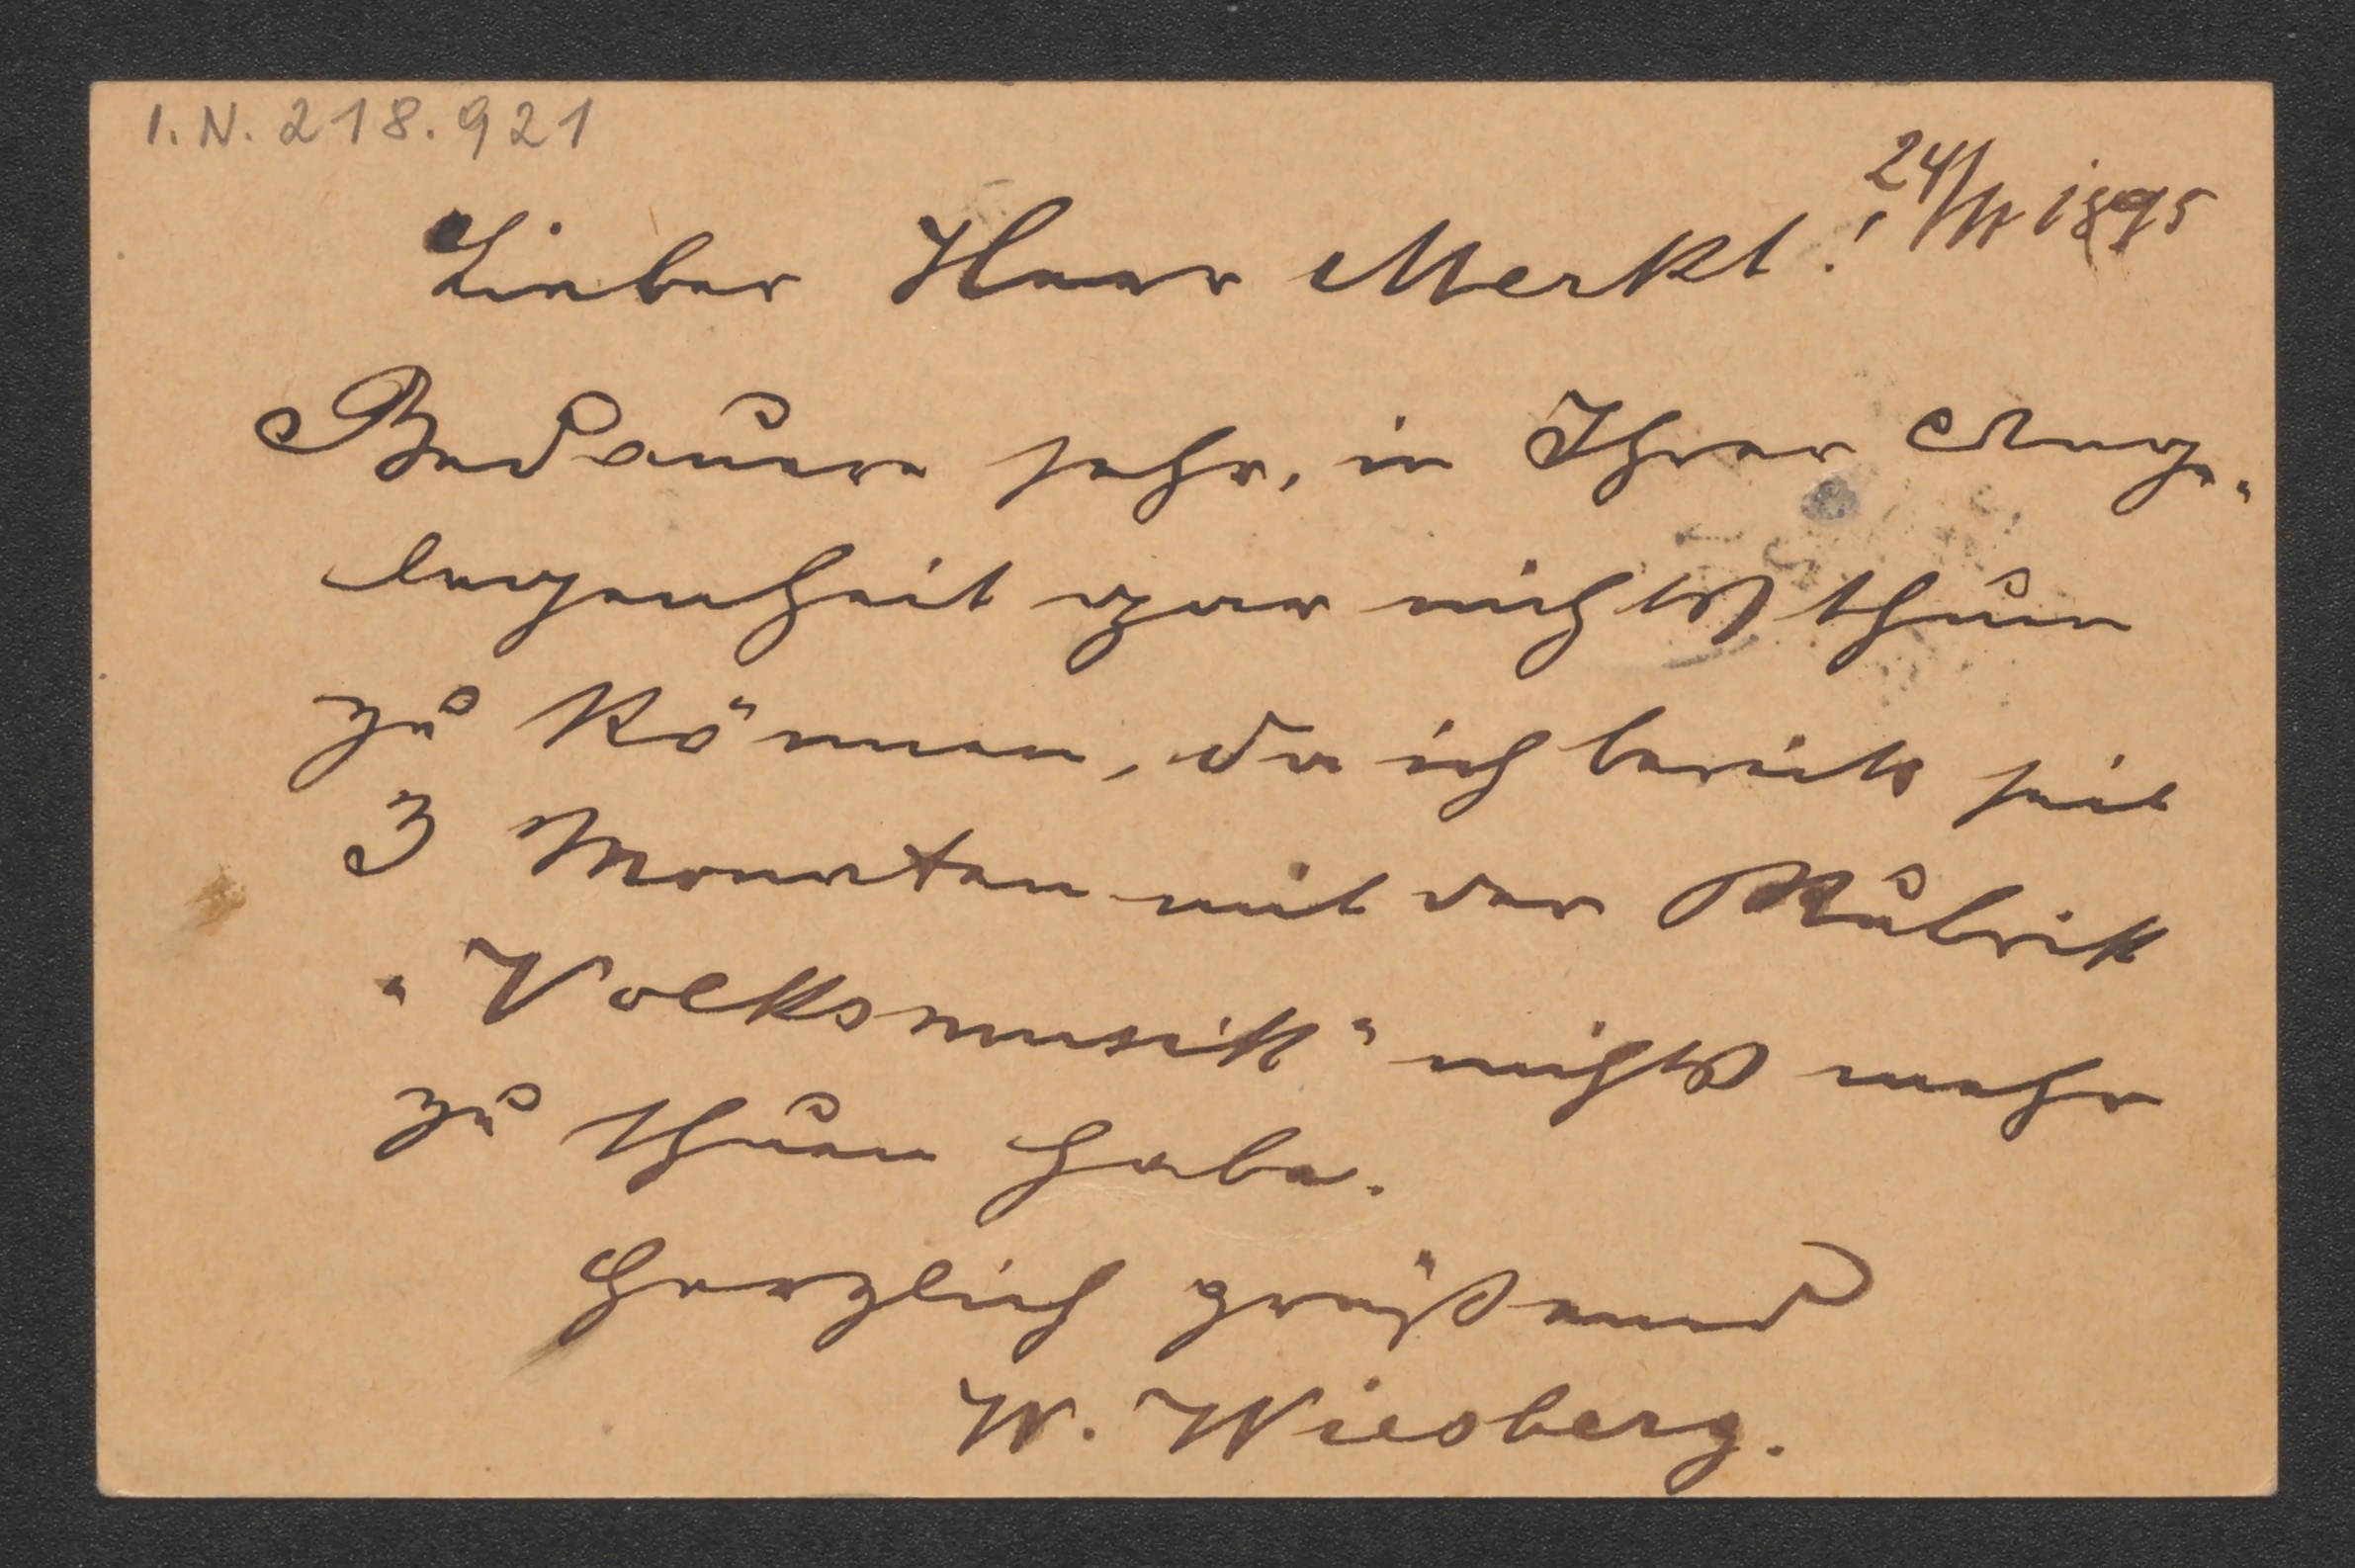 I.N. 218.921
24/II 1895
Lieber Herr Merkl!
Bedauere sehr, in Ihrer Ange-
legenheit gar nichts thun
zu können, da ich bereits seit
3 Monaten mit der Rubrik
"Volksmusik" nichts mehr
zu thuen habe.
Herzlich grüßend
W. Wiesberg.